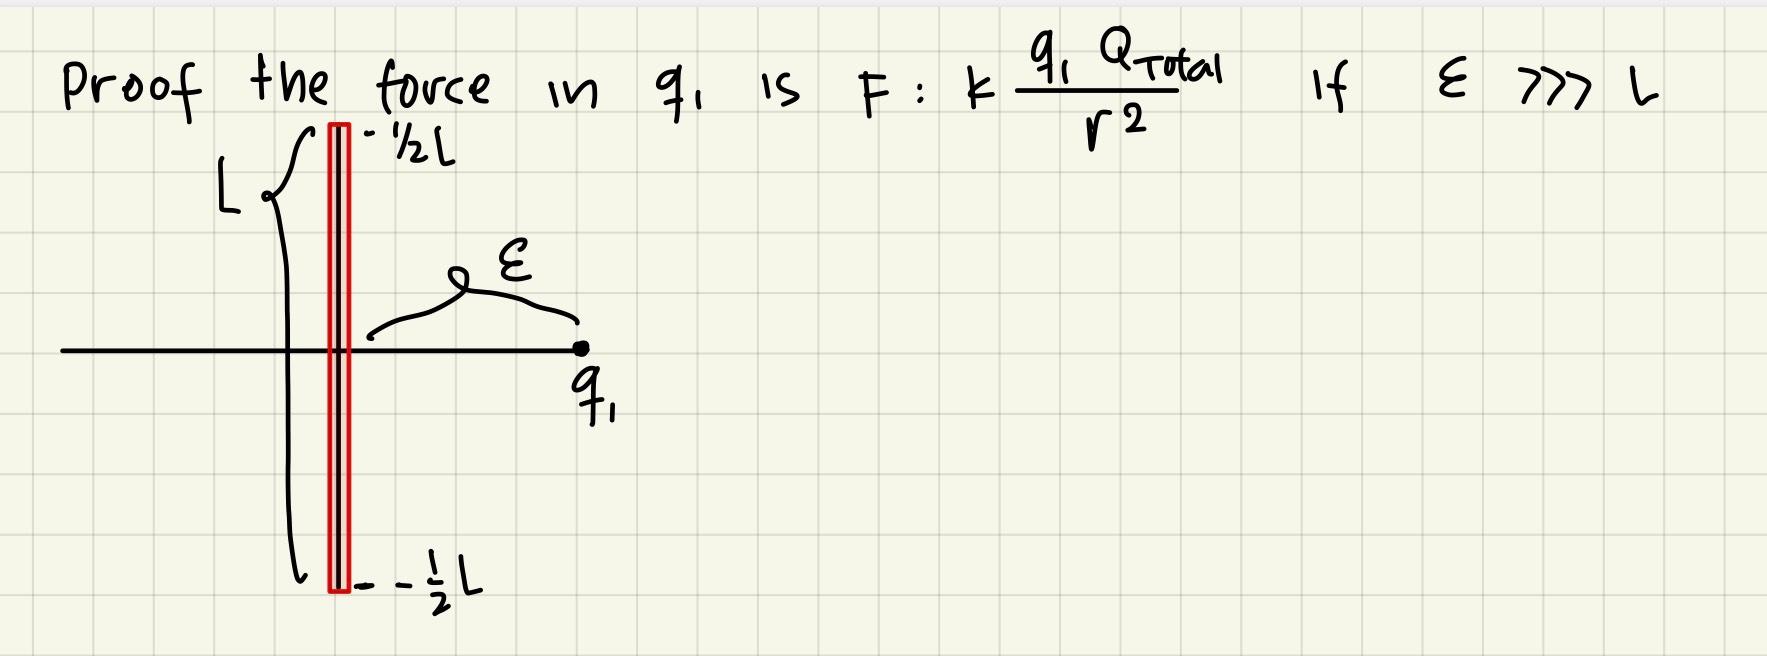 Proof the force in q₁ is F : k q₁ Q_Total / r² if ε >>> L
- ½ L
L
ε
q₁
- - ½ L